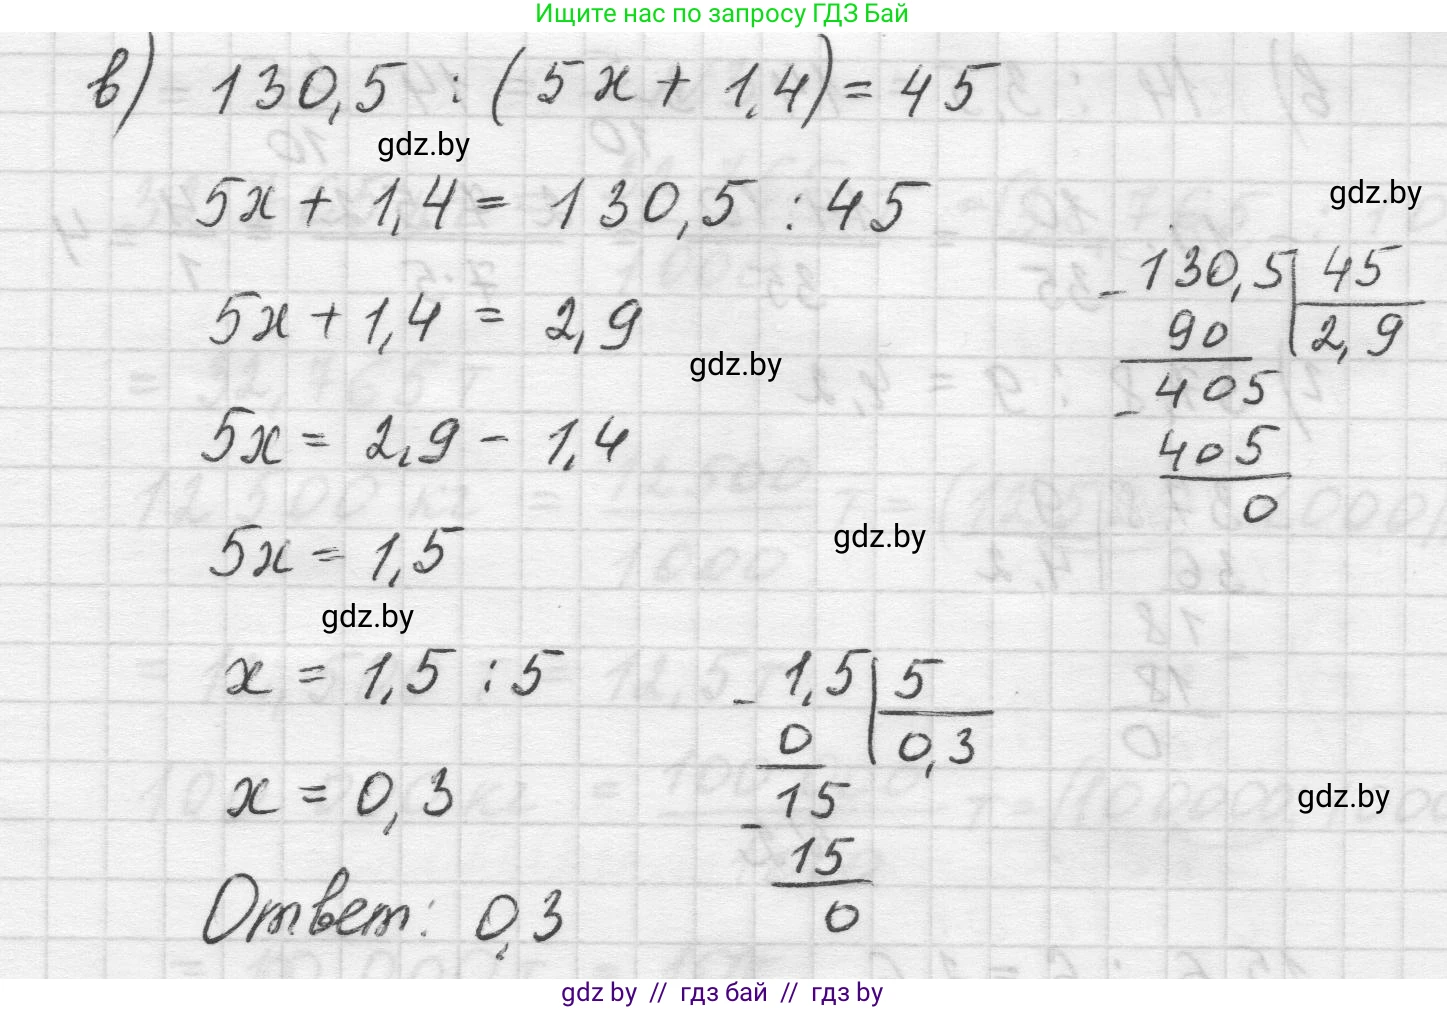 Ищите нас по запросу ГДЗ Бай
в) 130,5 : (5x + 1,4) = 45
gdz.by
5x + 1,4 = 130,5 : 45
gdz.by
5x + 1,4 = 2,9
gdz.by
5x = 2,9 - 1,4
5x = 1,5
gdz.by
gdz.by
x = 1,5 : 5
x = 0,3
Ответ: 0,3
- 130,5 | 45
90 | 2,9
- 405
405
0
- 1,5 | 5
0 | 0,3
- 15
15
0
gdz.by
gdz by // гдз бай // гдз by